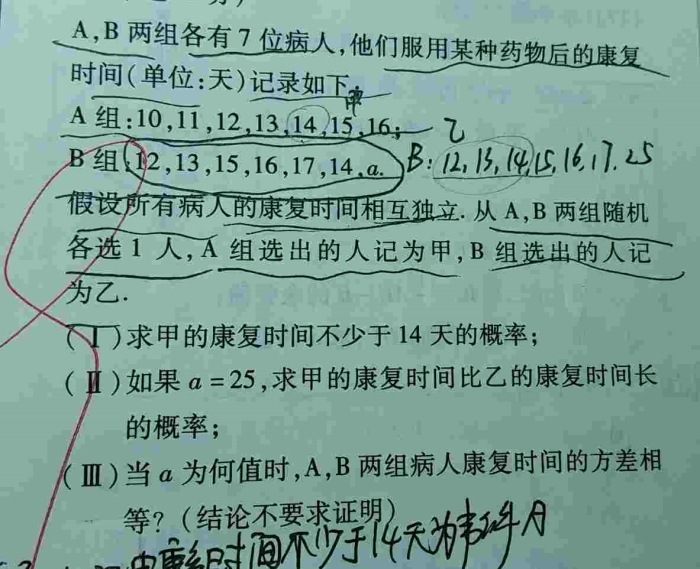 A,B 两组各有 7 位病人,他们服用某种药物后的康复
时间(单位:天)记录如下:
甲
A 组:10,11,12,13,14,15,16; 乙
B 组:12,13,15,16,17,14,a. B: 12,13,14,15,16,17.25
假设所有病人的康复时间相互独立.从 A,B 两组随机
各选 1 人,A 组选出的人记为甲,B 组选出的人记
为乙.
(Ⅰ)求甲的康复时间不少于 14 天的概率;
(Ⅱ)如果 a = 25,求甲的康复时间比乙的康复时间长
的概率;
(Ⅲ)当 a 为何值时,A,B 两组病人康复时间的方差相
等? (结论不要求证明)
时间不少于14天为事件A